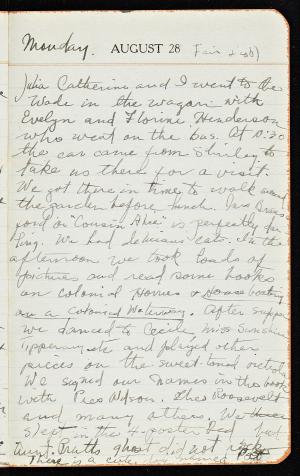 Monday. AUGUST 28 Fair & cool)
Julia Catherine and I went to the
Wade in the wagon with
Evelyn and Florine Henderson
who went on the bus. At 10:30
the car came from Shirley to
take us there for a visit.
We got there in time to walk around
the garden before lunch. Mrs
or "Cousin Alice" is perfectly
We had delicious eats. In the
afternoon we took loads of
pictures and read some books
on colonial Homes & Houseboating
on a Colonial Waterway. After supper
we danced to Cecile, Miss Sunshine
Tipperary etc and played other
pieces on the sweet toned victrola
We signed our names in the book
with Pres Wilson. Theo Roosevelt
and many others. We three
slept in the 4-poster bed but
Aunt Pratts ghost did not
There is a cute